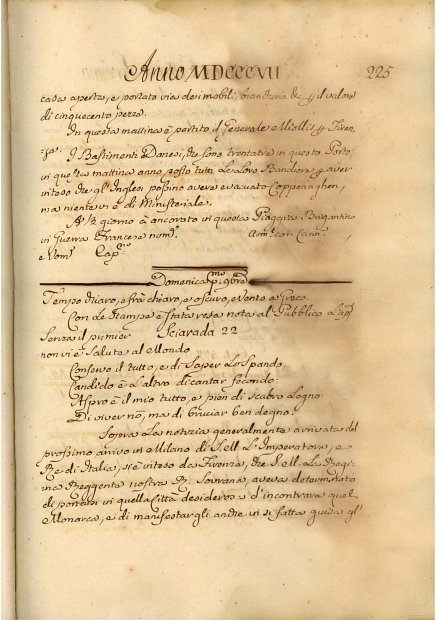 Anno MDCCCVII 225
casa aperta, e portato via dei mobili, biancheria &c p il valore
di cinquecento pezze.
In questa mattina è partito il Generale Miollis p Firen-
ze. I Bastimenti Danesi, che sono trentatre in questo Porto,
in questa mattina anno posto tutti le loro Bandiere p aver
inteso che gl'Inglesi possino avere evacuato Coppenaghen,
ma niente vi è di Ministeriale.
A ½ giorno è ancorato in questa Piaggia Brigantino
in Guerra Francese nom.º con Cann.
e Nom.º Cap.º
Domenica P.mo 9bre
Tempo vario, e frà chiaro, e oscuro, e Vento a Greco.
Con le stampe è stata resa nota al Pubblico la
Senza il primier Sciarada 22
non vi è Salute al Mondo
Conservo il tutto, e di saper lo spando,
Candido è l'altro di cantar fecondo:
Aspro è il mio tutto, e pien di scabro legno
Di viver nò, ma di bruciar ben degno.
Sopra la notizia generalmente arrivata del
prossimo arrivo in Milano di S. M. L'Imperatore, e
Rè di Italia, si è inteso da Firenze, che S. M. la Regi-
na Reggente nostra R. Sovrana, aveva determinato
di portarsi in quella Città desiderosa d'incontrare quel
Monarca, e di manifestargli anche in sì fatta guisa gl'